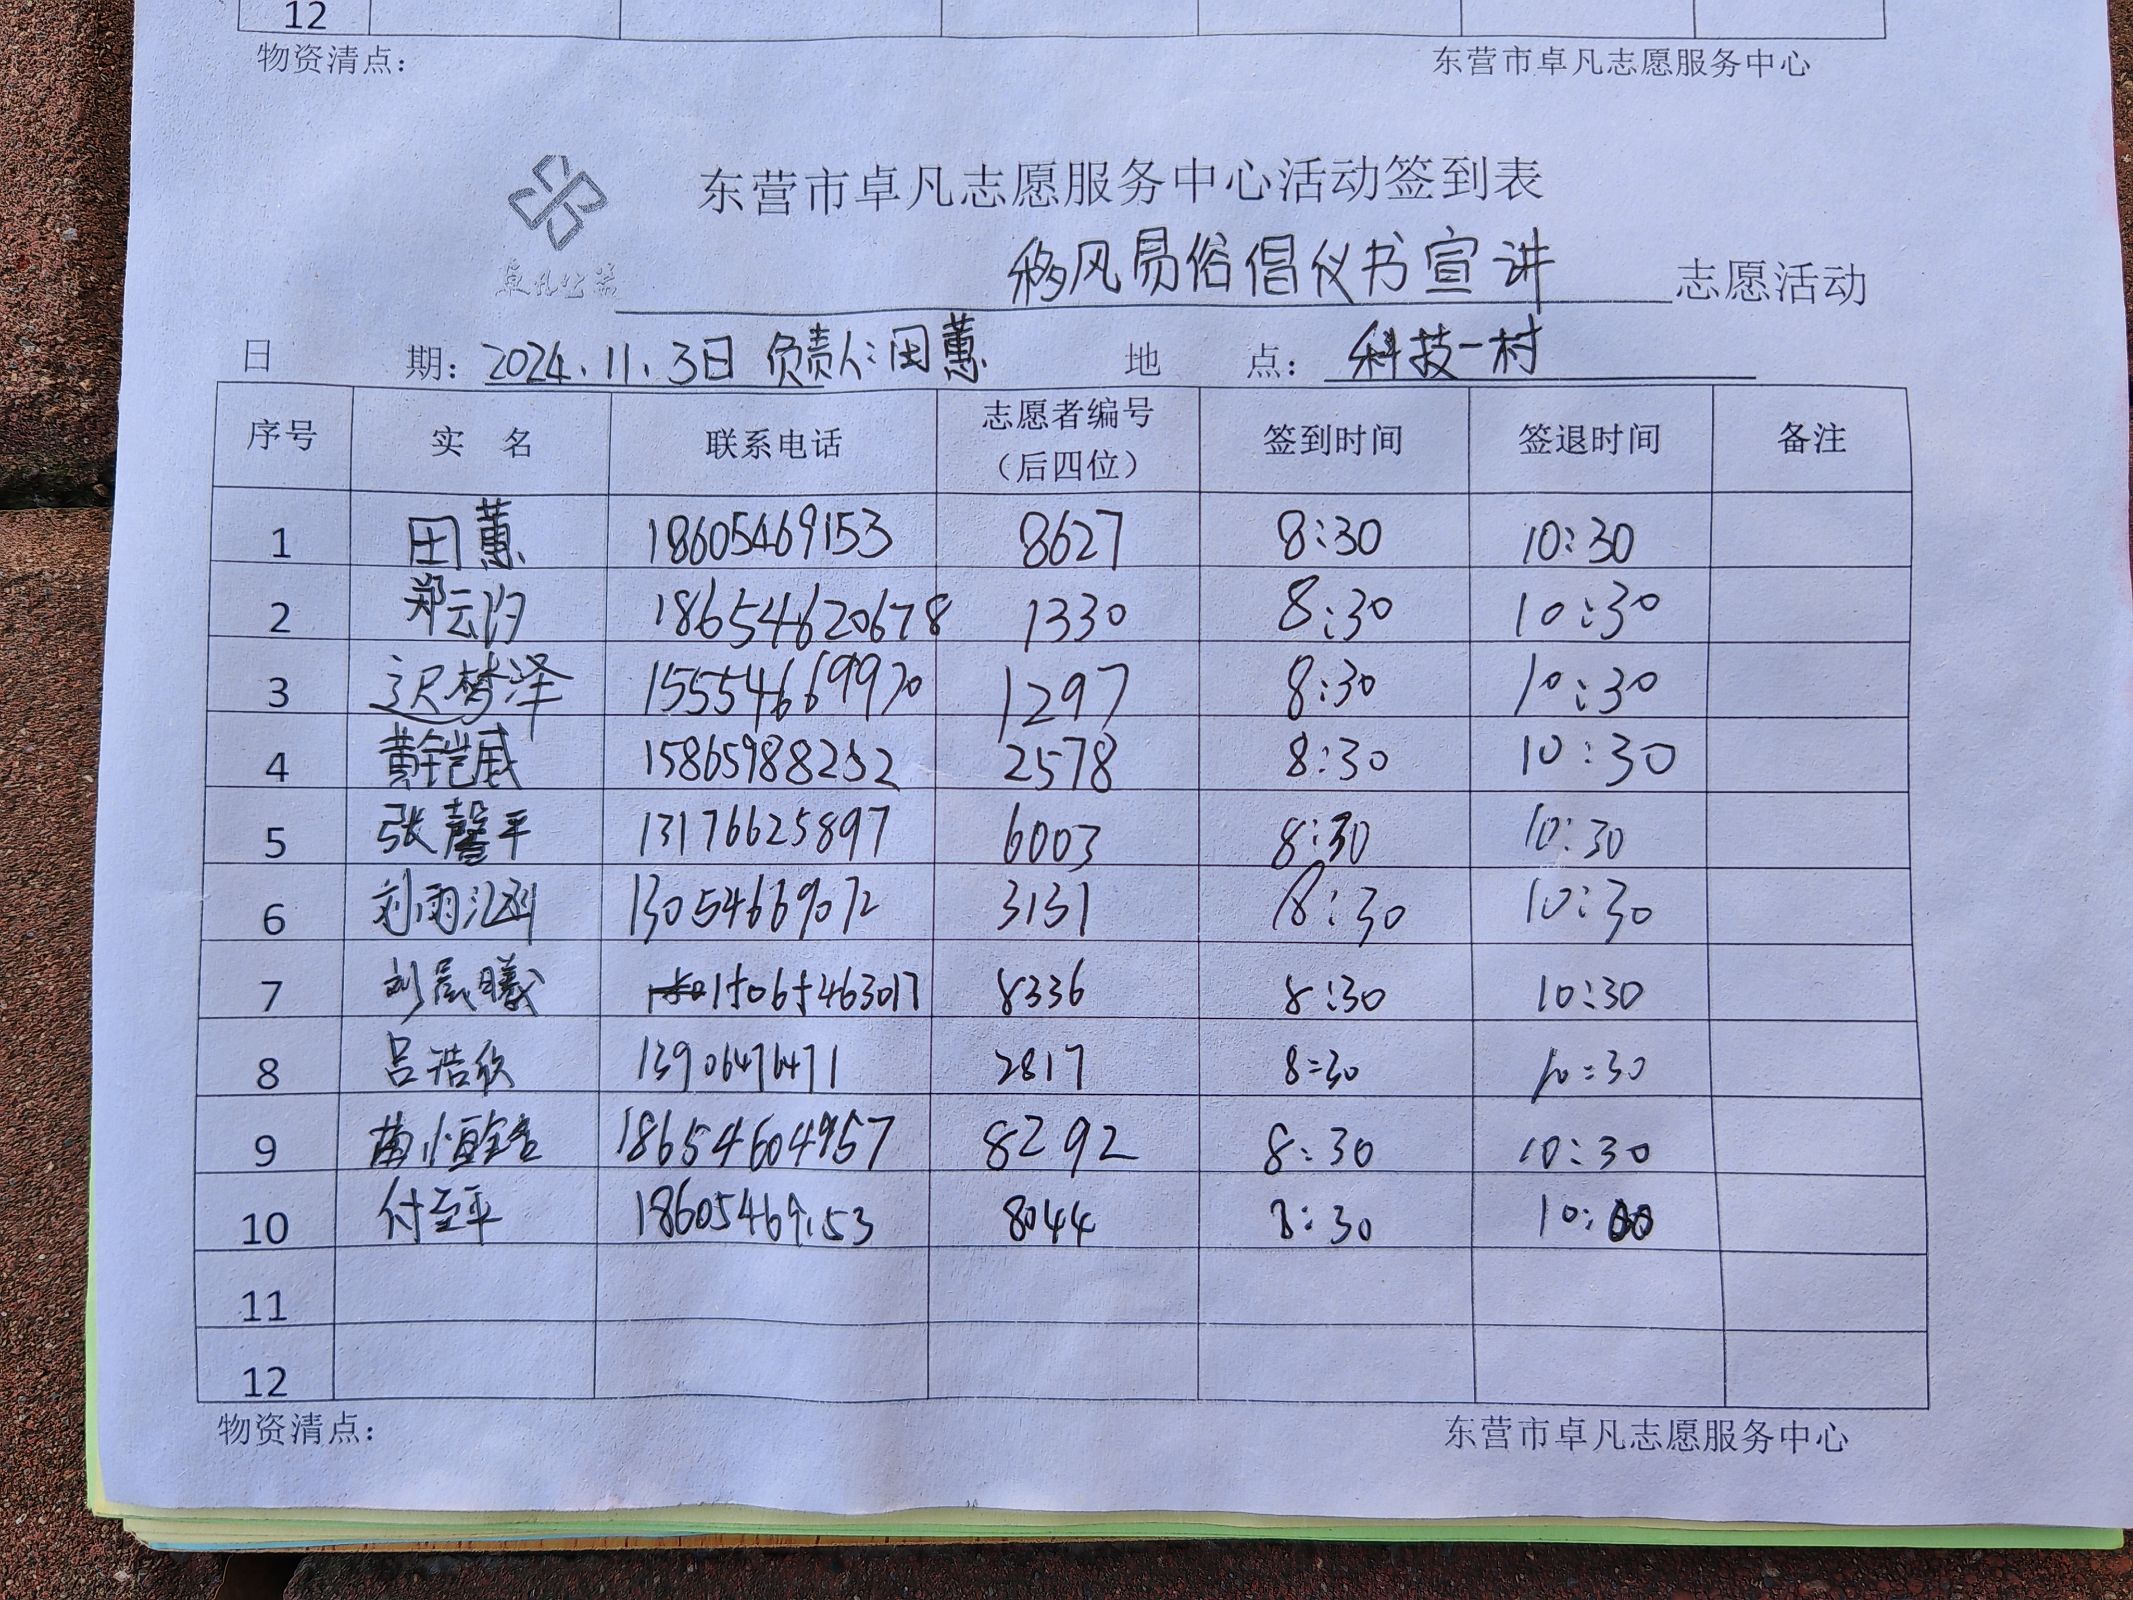 12
物资清点：	东营市卓凡志愿服务中心
东营市卓凡志愿服务中心活动签到表
卓凡公益
移风易俗倡仪书宣讲 志愿活动
日 期：2024.11.3日 负责人：田蕙 地 点：科技一村
序号 实 名 联系电话 志愿者编号（后四位） 签到时间 签退时间 备注
1 田蕙 18605469153 8627 8:30 10:30
2 郑云汐 18654620678 1330 8:30 10:30
3 迟梦泽 15554669970 1297 8:30 10:30
4 黄铠威 15865988232 2578 8:30 10:30
5 张馨平 13176625897 6003 8:30 10:30
6 刘雨涵 13054669072 3131 8:30 10:30
7 刘晨曦 15065463017 8336 8:30 10:30
8 吕浩欣 13906476471 2817 8:30 10:30
9 苗恒铭 18654604957 8292 8:30 10:30
10 付至平 18605469153 8044 8:30 10:00
11
12
物资清点：	东营市卓凡志愿服务中心